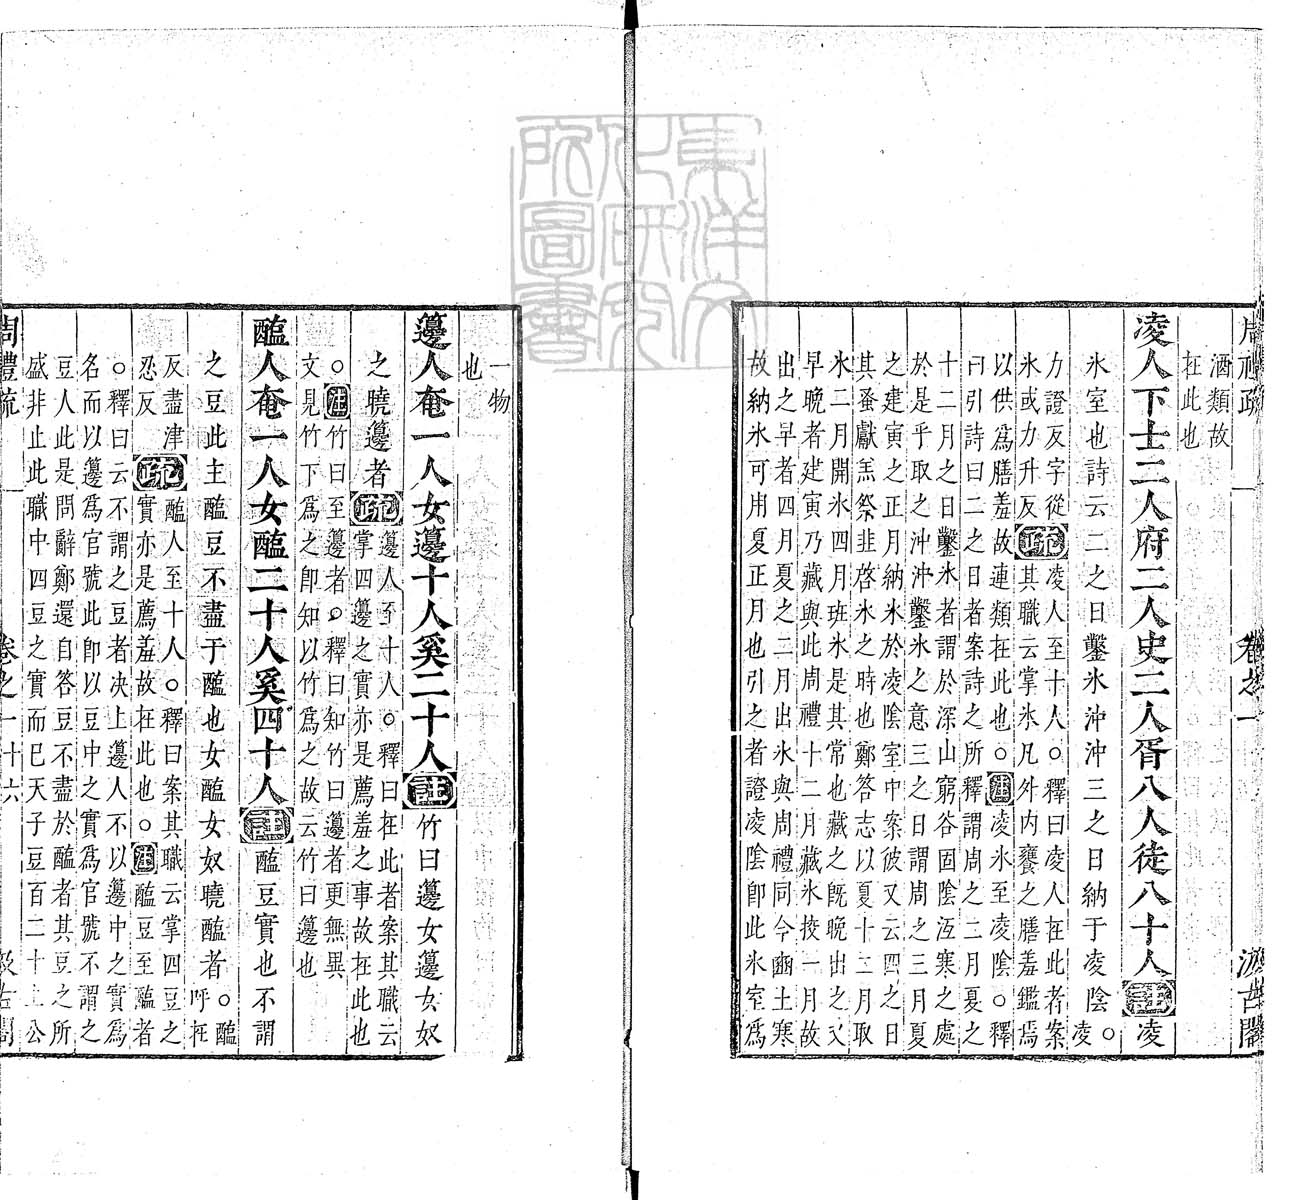 酒類故
在此也
凌人下士二人府二人史二人胥八人徒八十人註凌
氷室也詩云二之日鑿氷沖沖三之日納于凌陰○凌
力證反字從凌人至十人○釋曰凌人在此者案
氷或力升反疏其職云掌氷凡外內饔之膳羞鑑焉
以供爲膳羞故連類在此也○注凌氷至凌陰○釋
曰引詩曰二之日者案詩之所釋謂周之二月夏之
十二月之日鑿氷者謂於深山窮谷固陰沍寒之處
於是乎取之沖沖鑿氷之意三之日謂周之三月夏
之建寅之正月納氷於凌陰室中案彼又云四之日
其蚤獻羔祭韭啓氷之時也鄭荅志以夏十二月取
氷二月開氷四月班氷是其常也藏之旣晚出之又
早晚者建寅乃藏與此周禮十二月藏氷挍一月故
出之早者四月夏之二月出氷與周禮同今豳土寒
故納氷可用夏正月也引之者證凌陰卽此氷室爲
一物
也
籩人奄一人女籩十人奚二十人註竹曰籩女籩女奴
之曉籩者疏籩人至十人○釋曰在此者案其職云
掌四籩之實亦是薦羞之事故在此也
○注竹曰至籩者○釋曰知竹曰籩者更無異
文見竹下爲之卽知以竹爲之故云竹曰籩也
醢人奄一人女醢二十人奚四十人註醢豆實也不謂
之豆此主醢豆不盡于醢也女醢女奴曉醢者○醢呼在
反盡津醢人至十人○釋曰案其職云掌四豆之
忍反疏實亦是薦羞故在此也○注醢豆至醢者
○釋曰云不謂之豆者决上籩人不以籩中之實爲
名而以籩爲官號此卽以豆中之實爲官號不謂之
豆人此是問辭鄭還自答豆不盡於醢者其豆之所
盛非止此職中四豆之實而已天子豆百二十上公
周禮疏 卷之一 十六 汲古閣